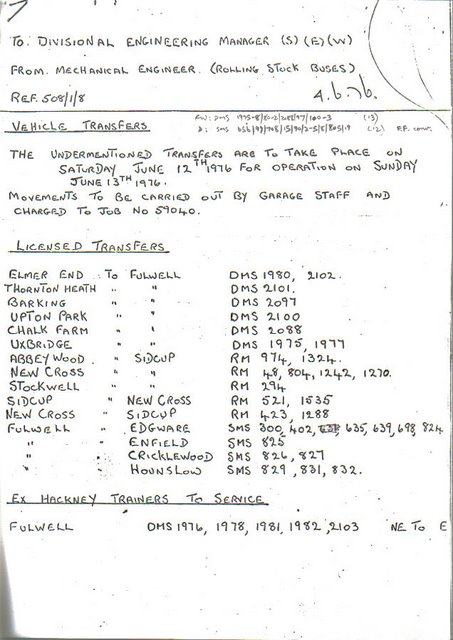 TO: DIVISIONAL ENGINEERING MANAGER (S) (E) (W)
FROM. MECHANICAL ENGINEER. (ROLLING STOCK BUSES)
REF. 508/1/8 4.6.76.
VEHICLE TRANSFERS
THE UNDERMENTIONED TRANSFERS ARE TO TAKE PLACE ON
SATURDAY JUNE 12TH 1976 FOR OPERATION ON SUNDAY
JUNE 13TH 1976.
MOVEMENTS TO BE CARRIED OUT BY GARAGE STAFF AND
CHARGED TO JOB NO 59040.
LICENSED TRANSFERS
ELMER END TO FULWELL DMS 1980, 2102.
THORNTON HEATH " " DMS 2101.
BARKING " " DMS 2097
UPTON PARK " " DMS 2100
CHALK FARM " " DMS 2088
UXBRIDGE " " DMS 1975, 1977
ABBEY WOOD . " SIDCUP RM 974, 1324.
NEW CROSS " " RM 48, 804, 1242, 1270.
STOCKWELL " " RM 294
SIDCUP " NEW CROSS RM 521, 1535
NEW CROSS " SIDCUP RM 423, 1288
FULWELL " EDGWARE SMS 300, 402, 635, 639, 698, 824
" " ENFIELD SMS 825
" " CRICKLEWOOD SMS 826, 827
" " HOUNSLOW SMS 829, 831, 832.
EX HACKNEY TRAINERS TO SERVICE
FULWELL DMS 1976, 1978, 1981, 1982, 2103 NE TO E